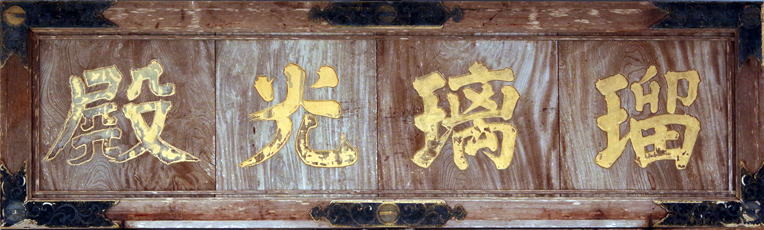 瑠璃光殿